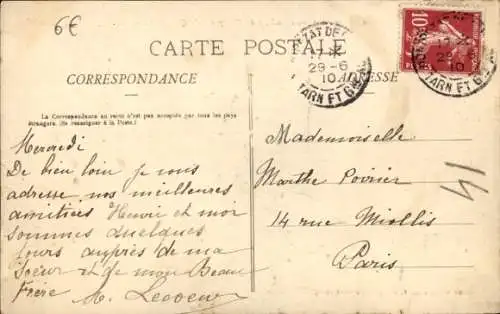 6€
CARTE POSTALE
CORRESPONDANCE
ADRESSE
La Correspondance au verso n'est pas acceptée par tous les pays
étrangers. (Se renseigner à la Poste.)
29-6
10
TARN ET G
10
10
TARN ET G
Mercredi
De bien loin je vous
adresse nos meilleures
amitiées Henri et moi
sommes quelques
jours auprès de ma
Soeur et de mon Beau
Frère
Mademoiselle
Marthe Poirier
14 rue Miollis
Paris
14